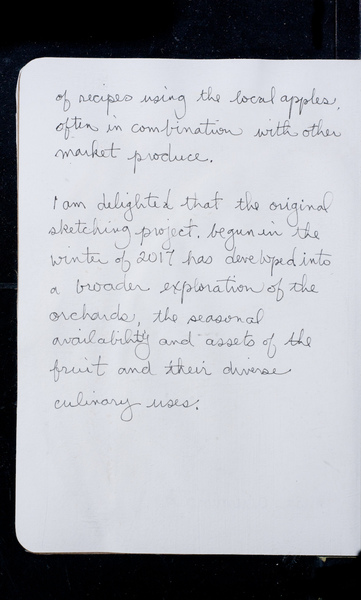 of recipes using the local apples,
often in combination with other
market produce.
I am delighted that the original
sketching project. begun in the
winter of 2017 has developed into
a broader exploration of the
orchards, the seasonal
availability and assets of the
fruit and their diverse
culinary uses.